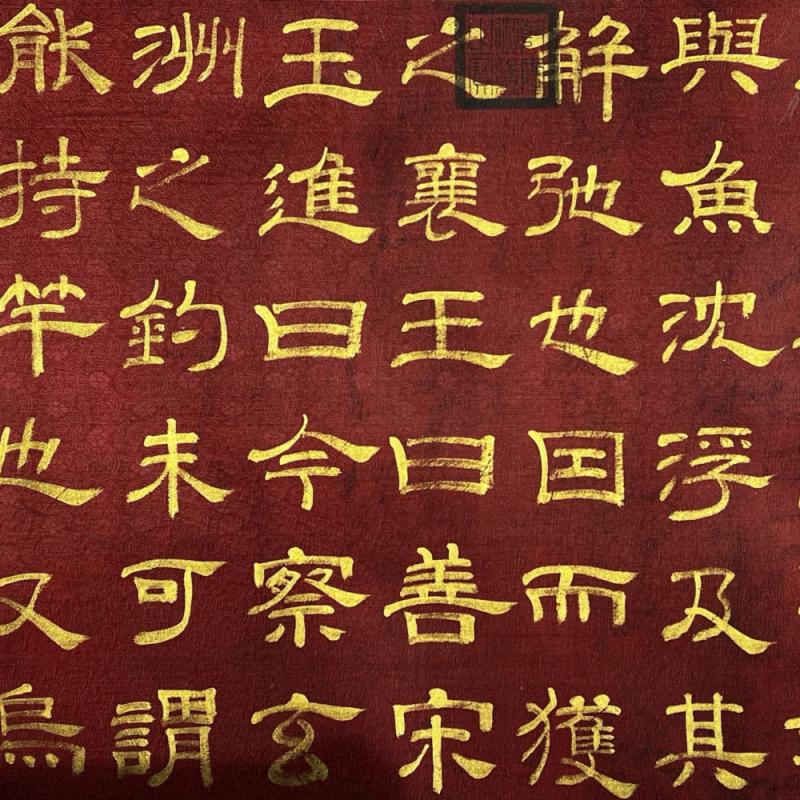 與魚沈浮及其
解弛也因而獲
之襄王曰善宋
玉進曰今察玄
洲之釣未可謂
能持竿也又烏